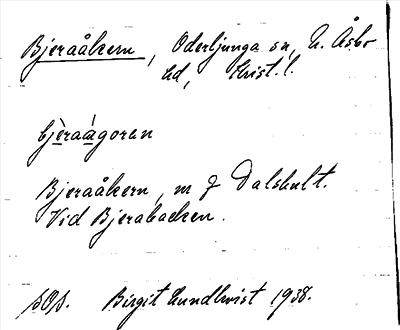 Bjeraåkern, Oderljunga sn, N. Åsbo
hd, Krist. l.
bjèraágoran
Bjeraåkern, m f Dalshult.
Vid Bjerabacken.
Birgit Lundkvist 1938.